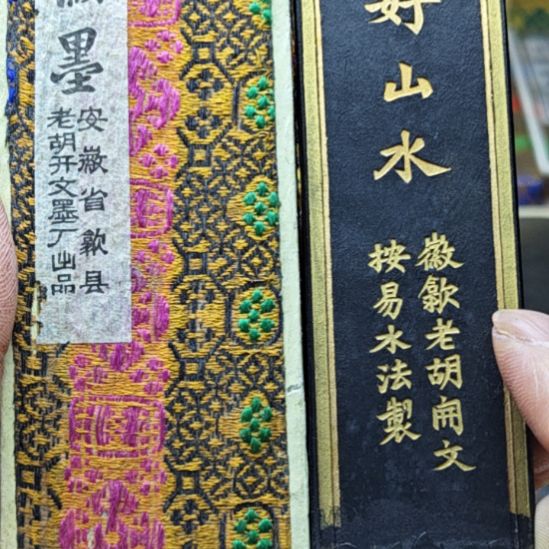 墨
安徽省歙县
老胡开文墨厂出品
好山水
徽歙老胡開文
按易水法製